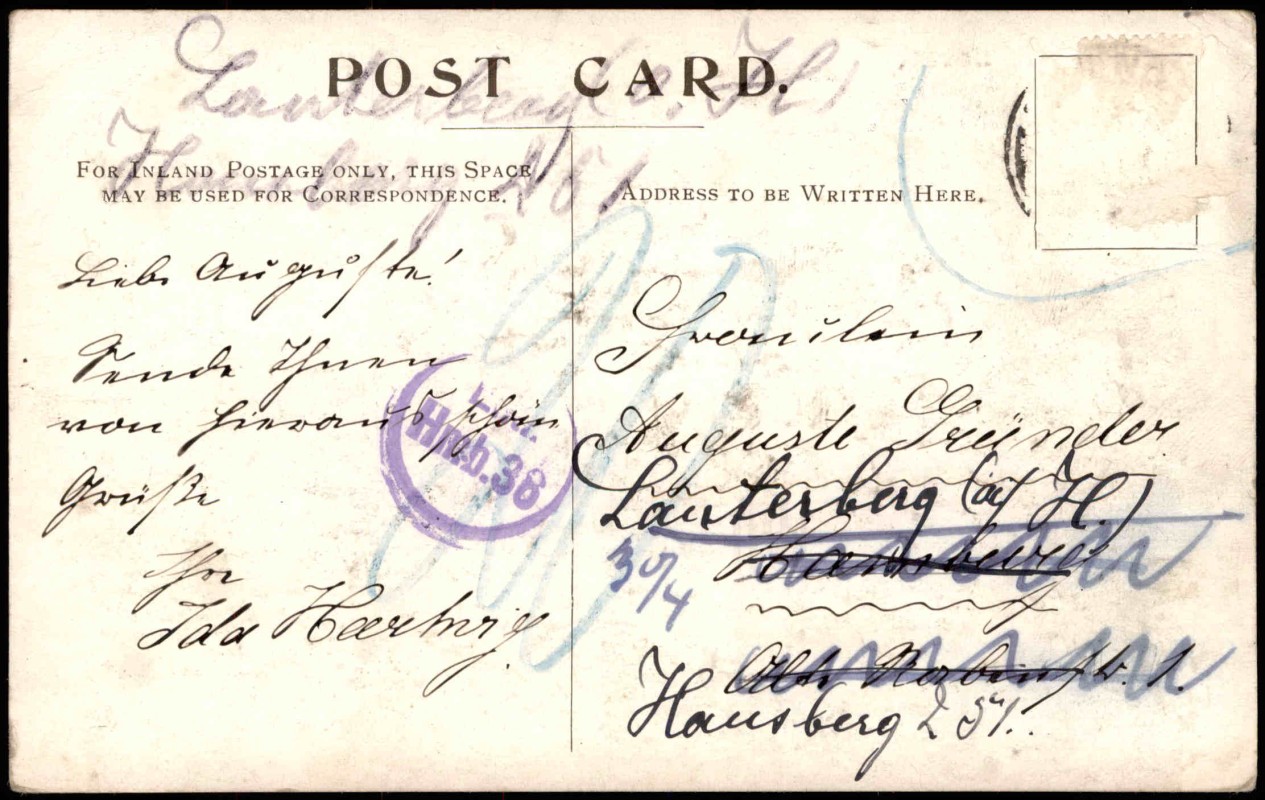 Lauterberg a. H.
POST CARD.
Hausberg 251
FOR INLAND POSTAGE ONLY, THIS SPACE
MAY BE USED FOR CORRESPONDENCE.
ADDRESS TO BE WRITTEN HERE.
Liebe Auguste!
Sende Ihnen
von hieraus schöne
Grüße
Ihre
Ida Hartwig
Hmb. 36
Fräulein
Auguste Gründer
Lauterberg (a/ H.)
Hamburg
30/4
Alte Rabenstr. 1.
Hausberg 251.